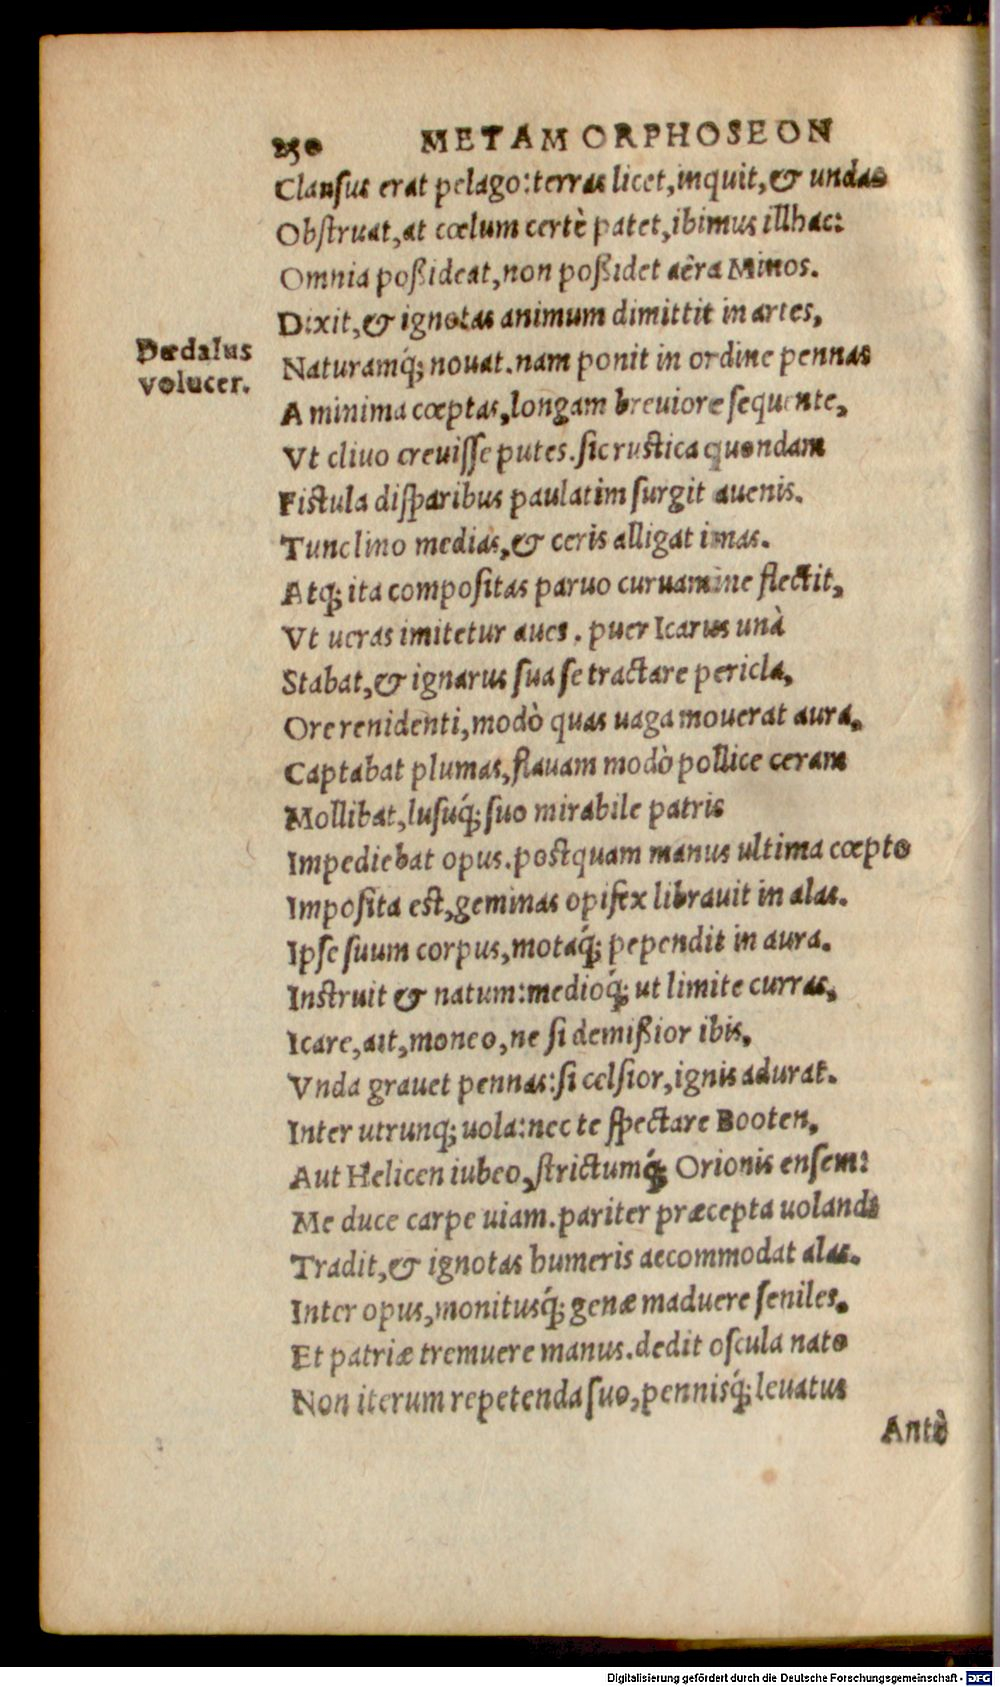 250 METAMORPHOSEON
Clausus erat pelago: terras licet, inquit, & undas
Obſtruat, at cœlum certè patet, ibimus illhac:
Omnia poßideat, non poßidet aêra Minos.
Dixit, & ignotas animum dimittit in artes,
Dædalus
volucer.
Naturamq́; nouat. nam ponit in ordine pennas
A minima cœptas, longam breuiore ſequente,
Vt cliuo creuiſſe putes. ſic ruſtica quondam
Fiſtula diſparibus paulatim ſurgit auenis.
Tunc lino medias, & ceris alligat imas.
Atq; ita compoſitas paruo curuamine flectit,
Vt ueras imitetur aues. puer Icarus unà
Stabat, & ignarus ſua ſe tractare pericla,
Ore renidenti, modò quas uaga mouerat aura,
Captabat plumas, flauam modò pollice ceram
Mollibat, luſuq́; ſuo mirabile patris
Impediebat opus. poſtquam manus ultima cœpto
Impoſita eſt, geminas opifex librauit in alas.
Ipſe ſuum corpus, motaq́; pependit in aura.
Inſtruit & natum: medioq́; ut limite curras,
Icare, ait, moneo, ne ſi demißior ibis,
Vnda grauet pennas: ſi celſior, ignis adurat.
Inter utrunq; uola: nec te ſpectare Booten,
Aut Helicen iubeo, ſtrictumq́; Orionis enſem:
Me duce carpe uiam. pariter præcepta uolandi
Tradit, & ignotas humeris accommodat alas.
Inter opus, monitusq́; genæ maduere ſeniles,
Et patriæ tremuere manus. dedit oſcula nato
Non iterum repetenda ſuo, pennisq́; leuatus
Antè
Digitalisierung gefördert durch die Deutsche Forschungsgemeinschaft - DFG